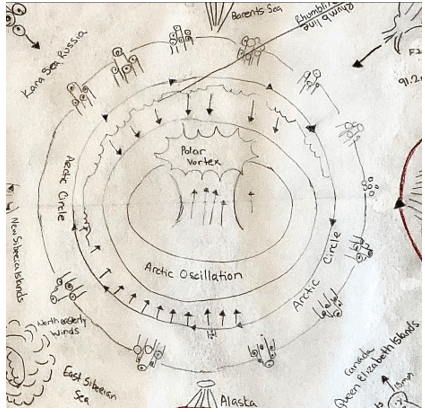 Barents Sea
Rhumb line
Kara Sea Russia
91.2
Polar
Vortex
Arctic Circle
New Siberian Islands
Arctic Oscillation
Arctic Circle
North easterly
Winds
East Siberian
Sea
Alaska
Canada
Queen Elizabeth Islands